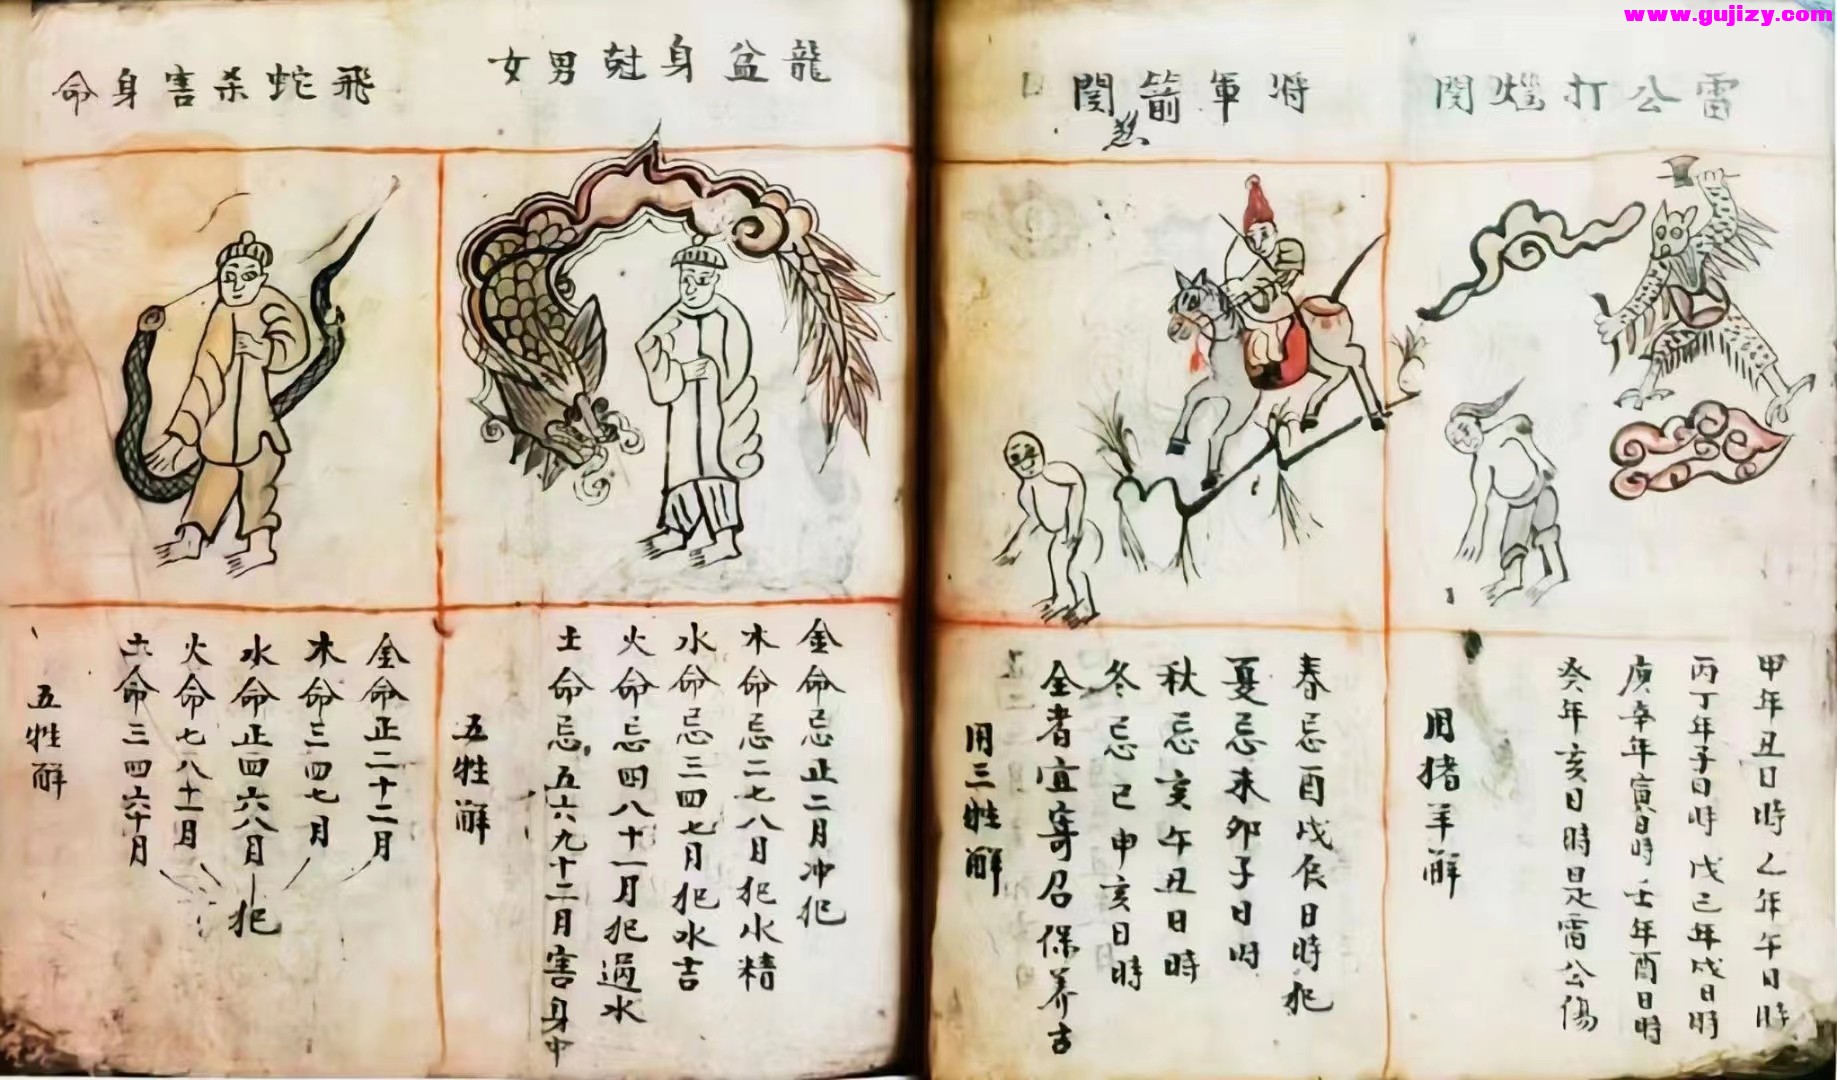 www.gujizy.com
雷公打㷟関
甲年丑日時乙年午日時
丙丁年子日時戊己年戌日時
庚辛年寅日時壬年酉日時
癸年亥日時是雷公傷
用猪羊解
将軍箭関
春忌酉戌辰日時犯
夏忌未卯子日时
秋忌亥午丑日時
冬忌巳申亥日時
全者宜寄召保养吉
用三牲解
龍盆身尅男女
金命忌正二月冲犯
木命忌二七八月犯水精
水命忌三四七月犯水吉
火命忌四八十一月犯過水
土命忌五六九十二月害身中
五牲解
飛蛇杀害身命
金命正二十二月
木命三四七月
水命正四六八月
火命七八十一月
土命三四六十月
犯
五牲解